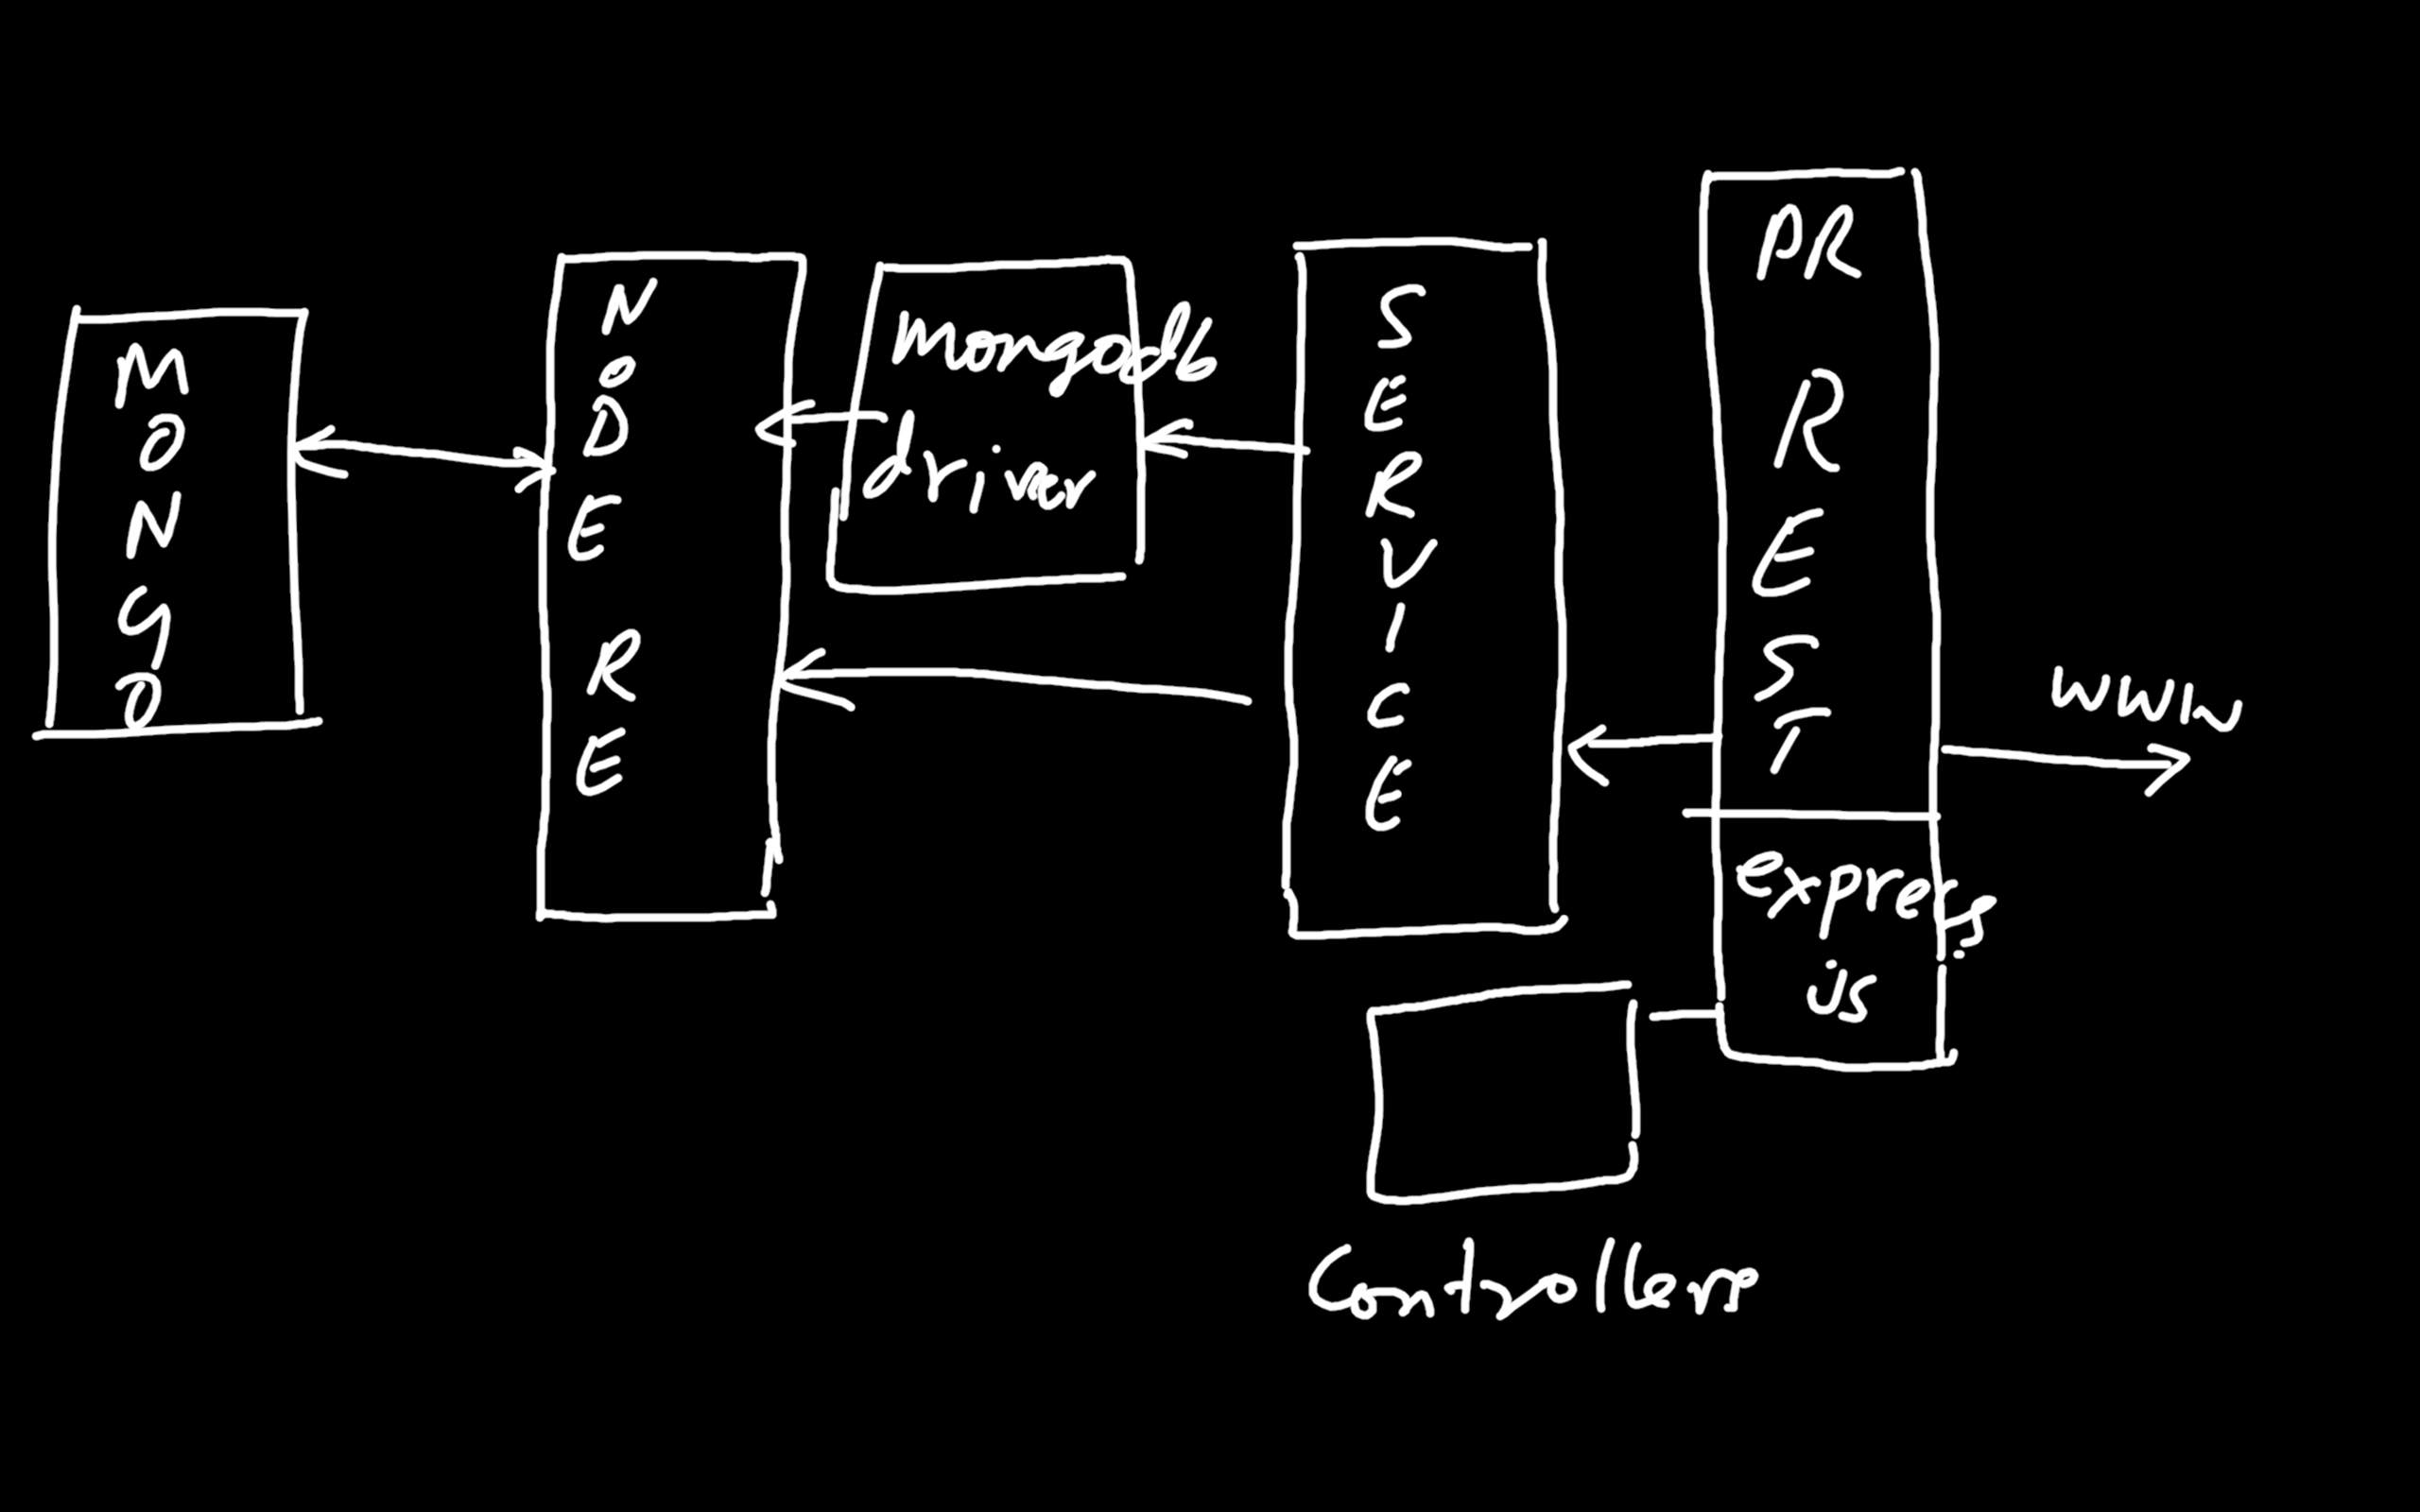 MONGO
NODE RE
mongodb
driver
SERVICE
PR
REST
express
js
www
Controllers